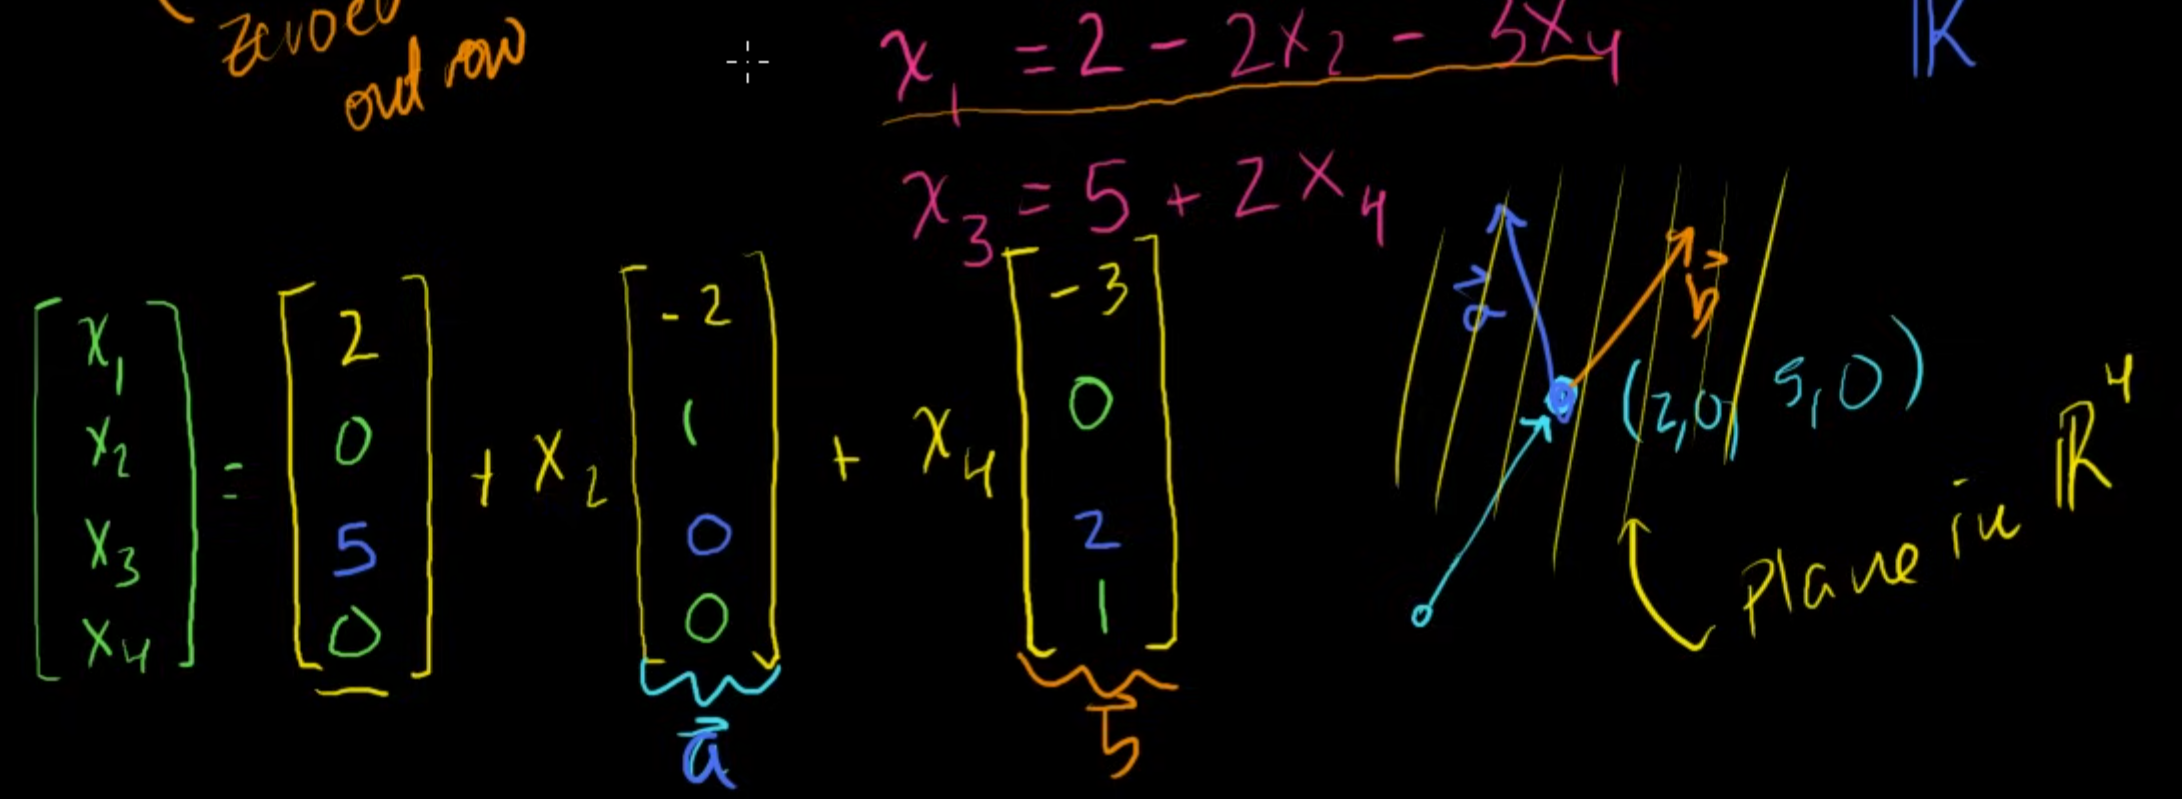 zeroed
out row
x₁ = 2 - 2x₂ - 3x₄
x₃ = 5 + 2x₄
[x₁ x₂ x₃ x₄] = [2 0 5 0] + x₂ [-2 1 0 0] + x₄ [-3 0 2 1]
a⃗
b⃗
a⃗
b⃗
(2,0,5,0)
Plane in ℝ⁴